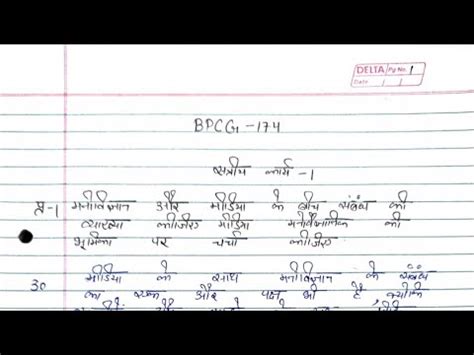 DELTA Pg No. 1
Date / /
BPCG - 174
सत्रीय कार्य - 1
प्र-1 मनोविज्ञान और मीडिया के बीच संबंध की
व्याख्या कीजिए मीडिया मनोवैज्ञानिक की
भूमिका पर चर्चा कीजिए
उ० मीडिया के साथ मनोविज्ञान के संबंध
का एक और पक्ष भी है क्योंकि